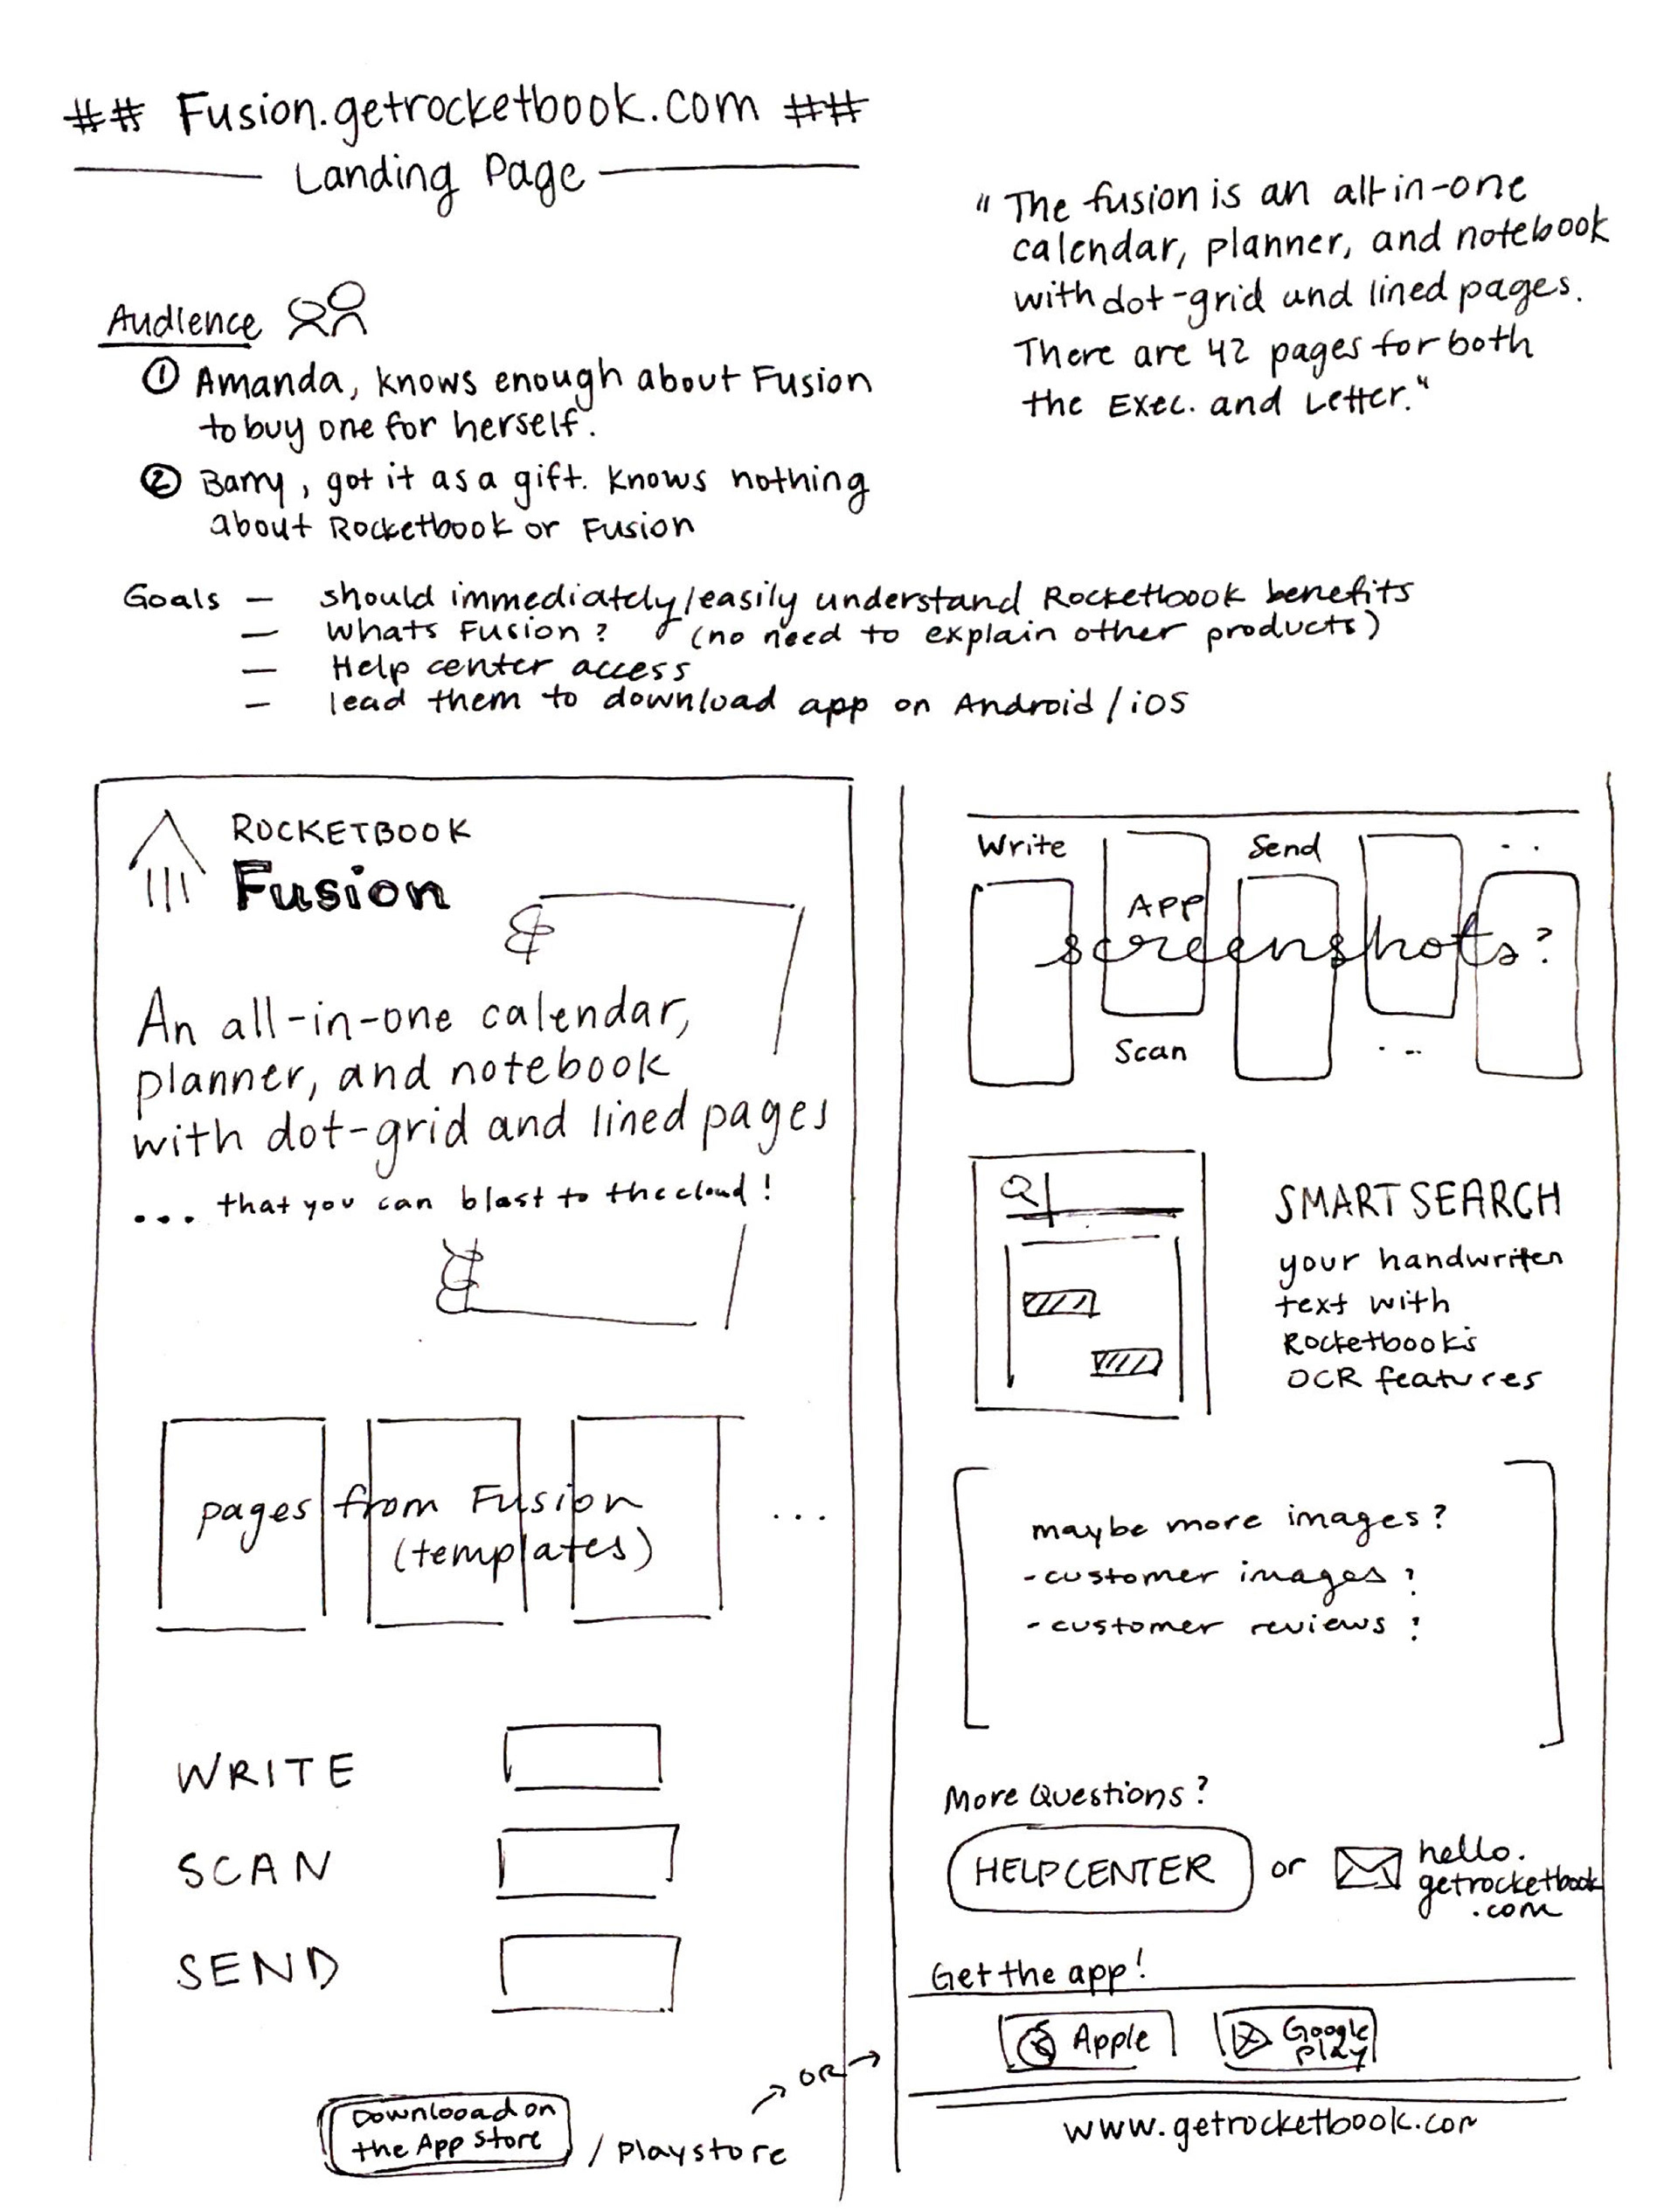 ## Fusion.getrocketbook.com ##
Landing Page
"The fusion is an all-in-one
calendar, planner, and notebook
with dot-grid and lined pages.
There are 42 pages for both
the Exec. and Letter."
Audience
① Amanda, knows enough about Fusion
to buy one for herself.
② Barry, got it as a gift. Knows nothing
about Rocketbook or Fusion
Goals — should immediately/easily understand Rocketbook benefits
— Whats Fusion? (no need to explain other products)
— Help center access
— lead them to download app on Android/iOS
ROCKETBOOK
Fusion
An all-in-one calendar,
planner, and notebook
with dot-grid and lined pages
... that you can blast to the cloud!
pages from Fusion ...
(templates)
WRITE
SCAN
SEND
Downlooad on
the App Store
/ Playstore
OR
Write Send ..
APP
screenshots?
Scan ...
SMART SEARCH
your handwriten
text with
Rocketbook's
OCR features
maybe more images?
- customer images?
- customer reviews?
More Questions?
HELP CENTER or hello.
getrocketbook
.com
Get the app!
Apple
Google
Play
www.getrocketbook.com